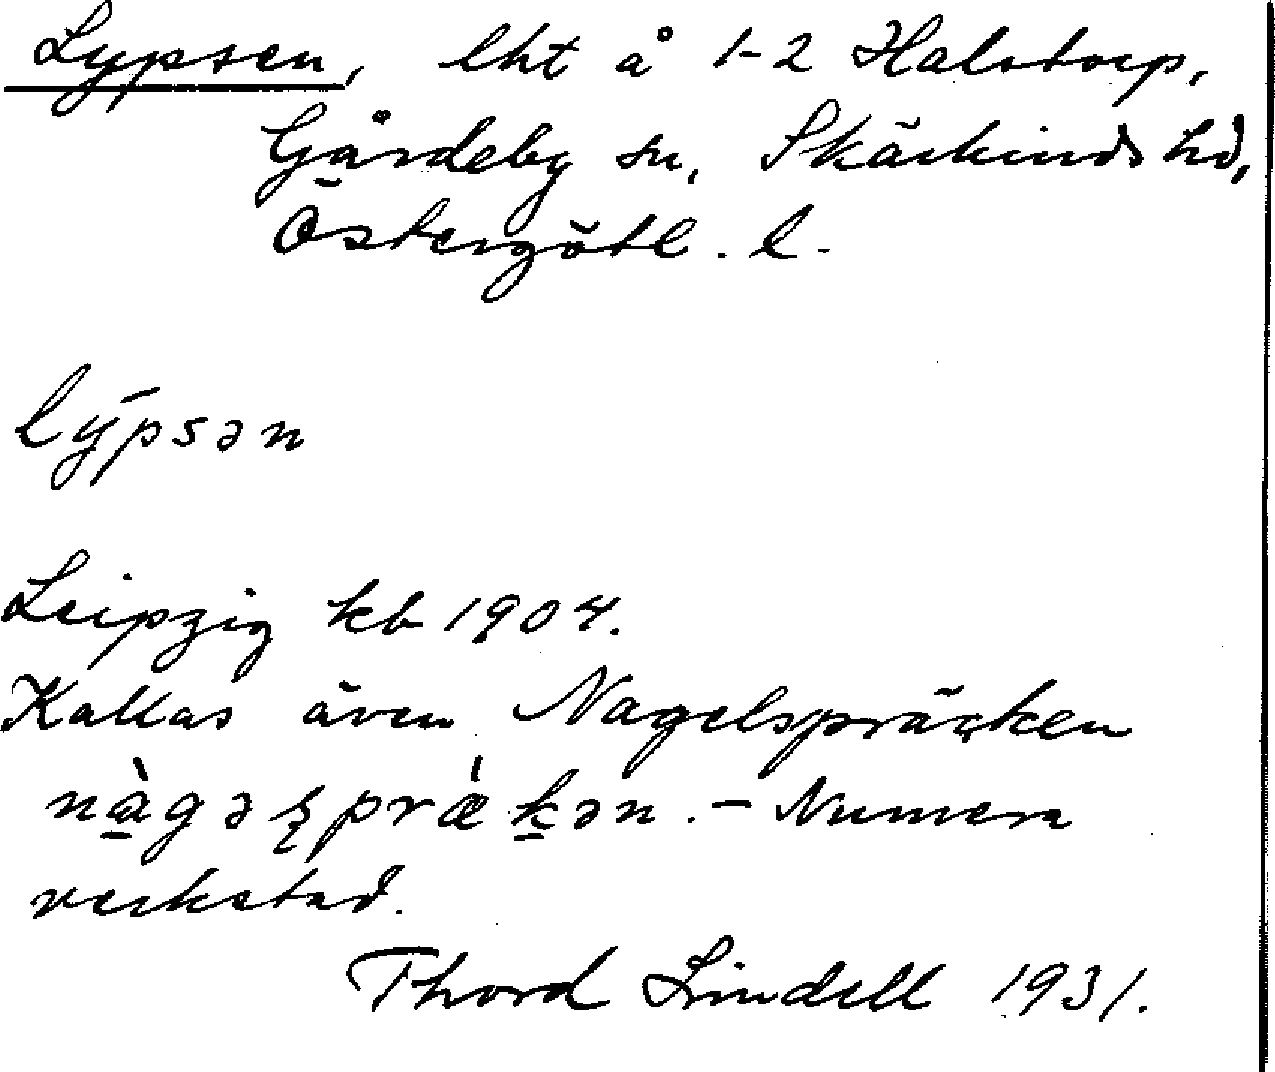 Lypsen, lht å 1-2 Halstorp,
Gårdeby sn, Skärkinds hd,
Östergötl. l.
lýpsən
Leipzig kb 1904.
Kallas även Nagelspräcken
nàgəʂprǽkən. - Numera
verkstad.
Thord Lindell 1931.